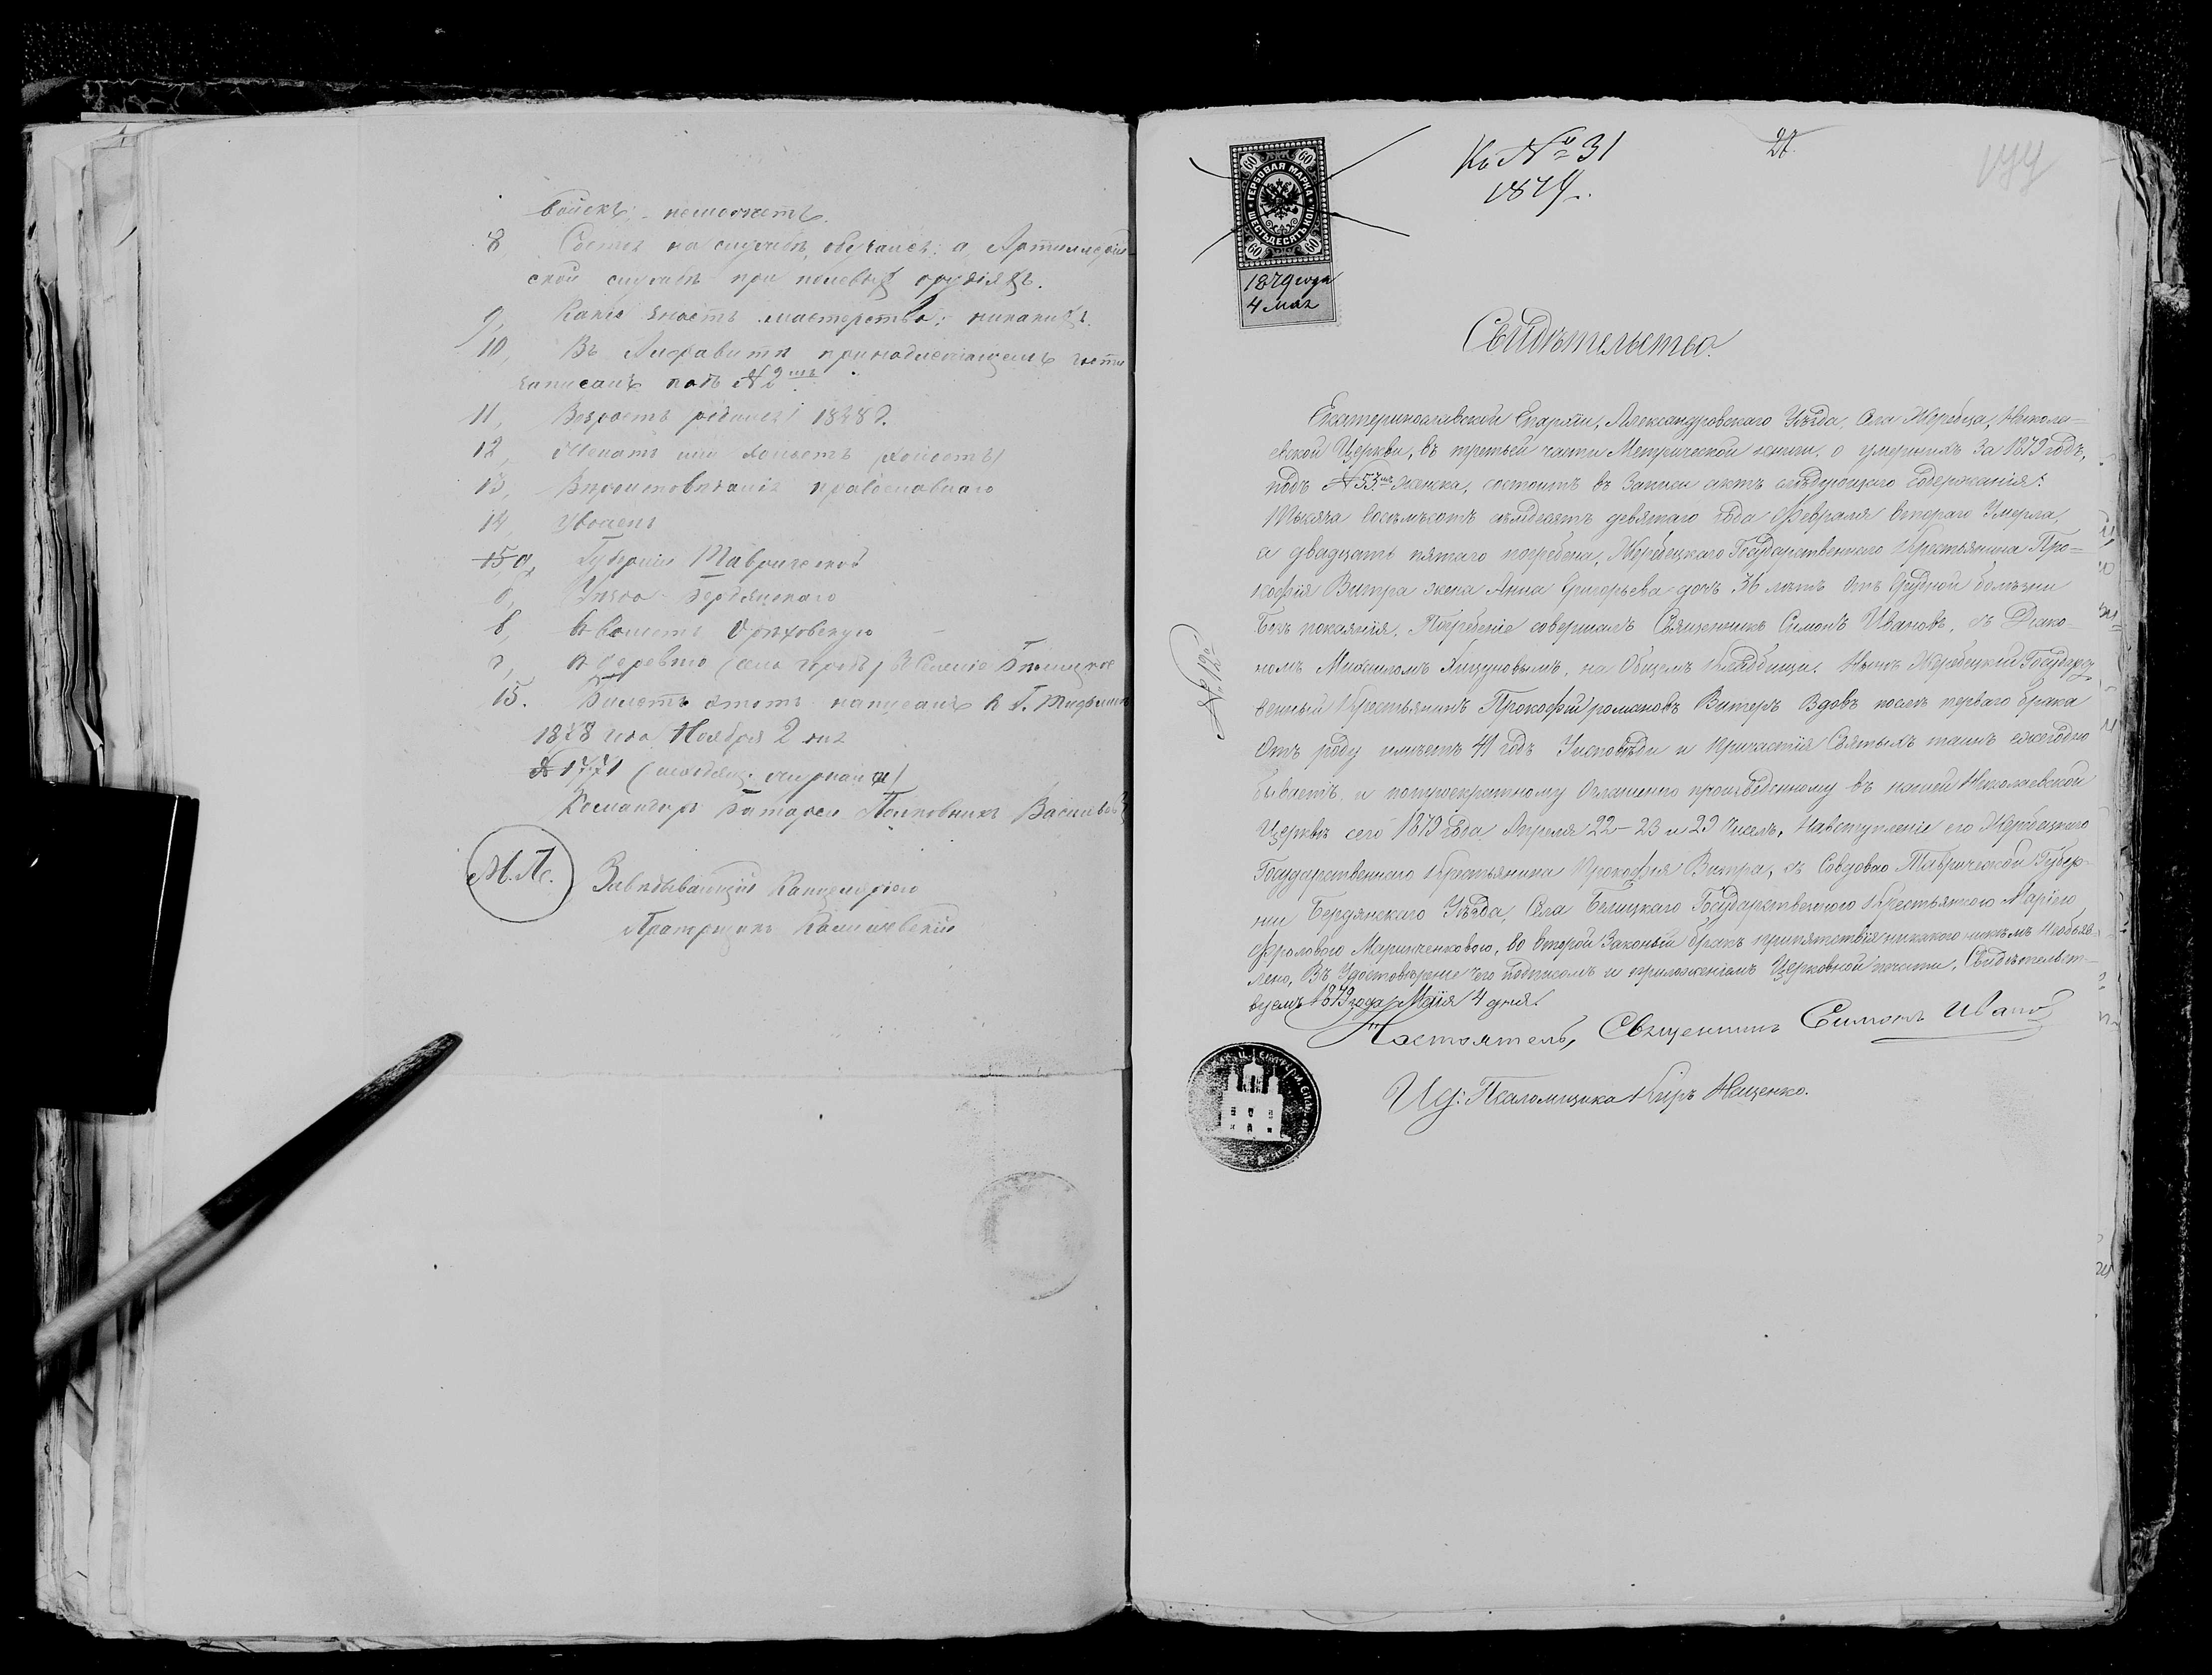 войскъ;
8 на службѣ, обучался: а, Артиллерій
ской службѣ при полевыхъ орудіяхъ.
9, Какія знаетъ мастерства: никакихъ.
10, Въ Алфавитѣ принадлежащемъ
записанъ подъ №2мъ
11, Возрастъ родился 1848 г.
12, Женатъ или холостъ (холостъ)
13, Вѣроисповѣданія православнаго
14, Уволенъ
15 а, Губернію Таврической
б, Уѣзда Бердянскаго
в, въ волость Орѣховскую
г, въ деревню (село городъ) въ Селеніе
15. Билетъ этотъ написанъ въ Г.
1878 года Ноября 2 дня
№ 1771
Командиръ батареи Полковникъ
М.П.
Завѣдывающій Канцеляріею
Прапорщикъ
ГЕРБОВАЯ МАРКА
ШЕСТЬДЕСЯТЪ КОП.
60 60
60 60
1879 года
4 мая
Къ № 31
1879 г.
27.
177
Свидѣтельство.
Екатеринославской Епархіи, Александровскаго Уѣзда, Села Жеребца, Никола=
евской Церкви, въ третьей части Метрической книги, о умершихъ за 1879 годъ,
подъ №53мъ женска, состоитъ въ записи актъ слѣдующаго содержанія:
Тысяча восемьсотъ семьдесятъ девятаго года Февраля втораго Умерла,
а двадцать пятаго погребена, Жеребецкаго Государственнаго Крестьянина Про=
кофія Витра жена Анна Григорьева дочь 36 лѣтъ отъ Грудной болѣзни
безъ покаянія. Погребеніе совершалъ Священникъ Симонъ Ивановъ, съ Діако-
номъ Михаиломъ на Общемъ кладбищѣ. Нынѣ Жеребецкій Государст
венный Крестьянинъ Прокофій романовъ Витеръ Вдовъ послѣ перваго брака
Отъ роду имѣетъ 41 годъ Уисповѣди и Причастія Святыхъ таинъ ежегодно
бываетъ, и потроекратному оглашенію произведенному въ нашей Николаевской
Церквѣ сего 1879 года Апреля 22-23 и 29 Чиселъ, Навступленіе его Жеребецкаго
Государственнаго Крестьянина Прокофія Витра, съ Вдовою Таврической Губер-
ніи Бердянскаго Уѣзда, Села Государственною Крестьянкою Маріею
Фроловою Маринченковою, во второй Законный бракъ припятствія никакого никѣмъ необъяв-
лено, Въ Удостовѣреніе чего подписомъ и приложеніемъ Церковной печати, Свидѣтельст-
вуемъ 1879 года Маія 4 дня.
Настоятель, Священникъ Симонъ Ивановъ
Ид: Псаломщика Киръ Нещенко.
№ 12